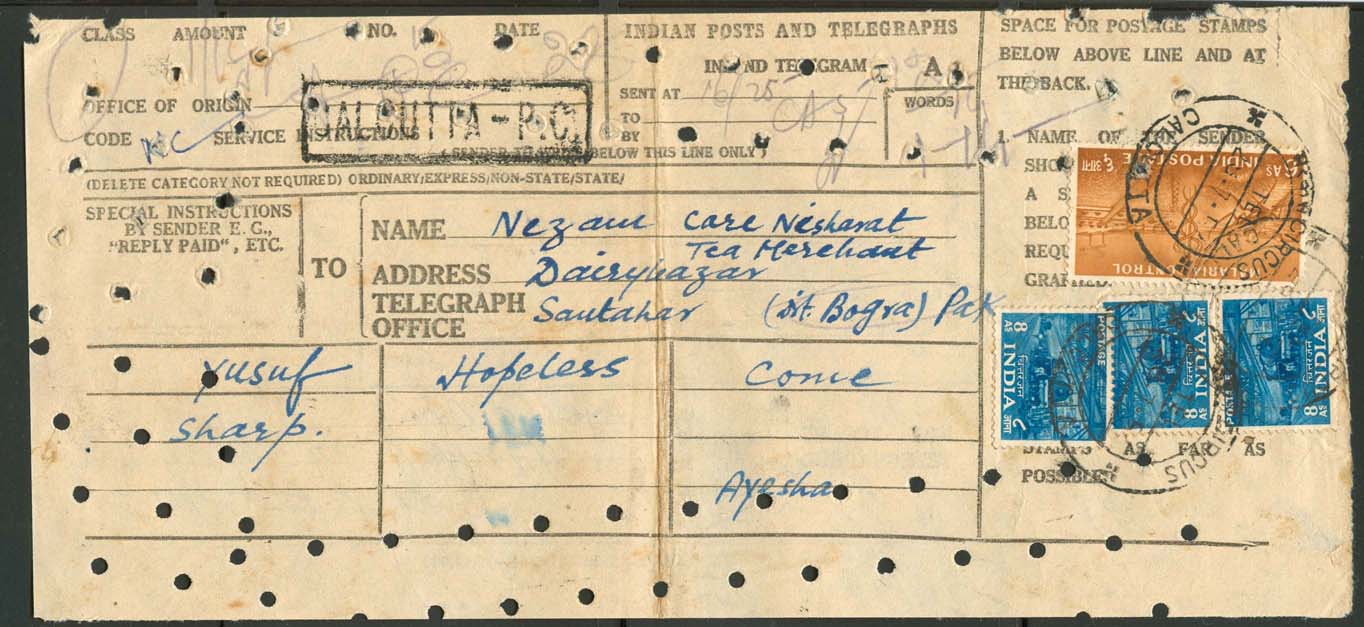 CLASS AMOUNT NO. DATE
OFFICE OF ORIGIN
CODE SERVICE INSTRUCTIONS
CALCUTTA - P.C.
INDIAN POSTS AND TELEGRAPHS
INLAND TELEGRAM
A
SENT AT
TO
BY
WORDS
(SENDER TO WRITE BELOW THIS LINE ONLY)
(DELETE CATEGORY NOT REQUIRED) ORDINARY/EXPRESS/NON-STATE/STATE/
SPECIAL INSTRUCTIONS
BY SENDER E. G.,
"REPLY PAID", ETC.
TO
NAME Nezam Care Nesharat
Tea Merchant
ADDRESS Dairybazar
TELEGRAPH
OFFICE Santahar (dt. Bogra) Pak
Yusuf Hopeless Come
Sharp.
Ayesha
SPACE FOR POSTAGE STAMPS
BELOW ABOVE LINE AND AT
THE BACK.
1. NAME OF THE SENDER
SHO
A S
BELO
REQU
GRA
STAMPS AS FAR AS
POSSIBLE
6 AS INDIA POSTAGE ६ आना
MALARIA CONTROL
8 AS INDIA ८ आना
चित्तरंजन
POSTAGE
8 AS INDIA ८ आना
चित्तरंजन
POSTAGE
8 AS INDIA ८ आना
चित्तरंजन
CALCUTTA
CIRCUS